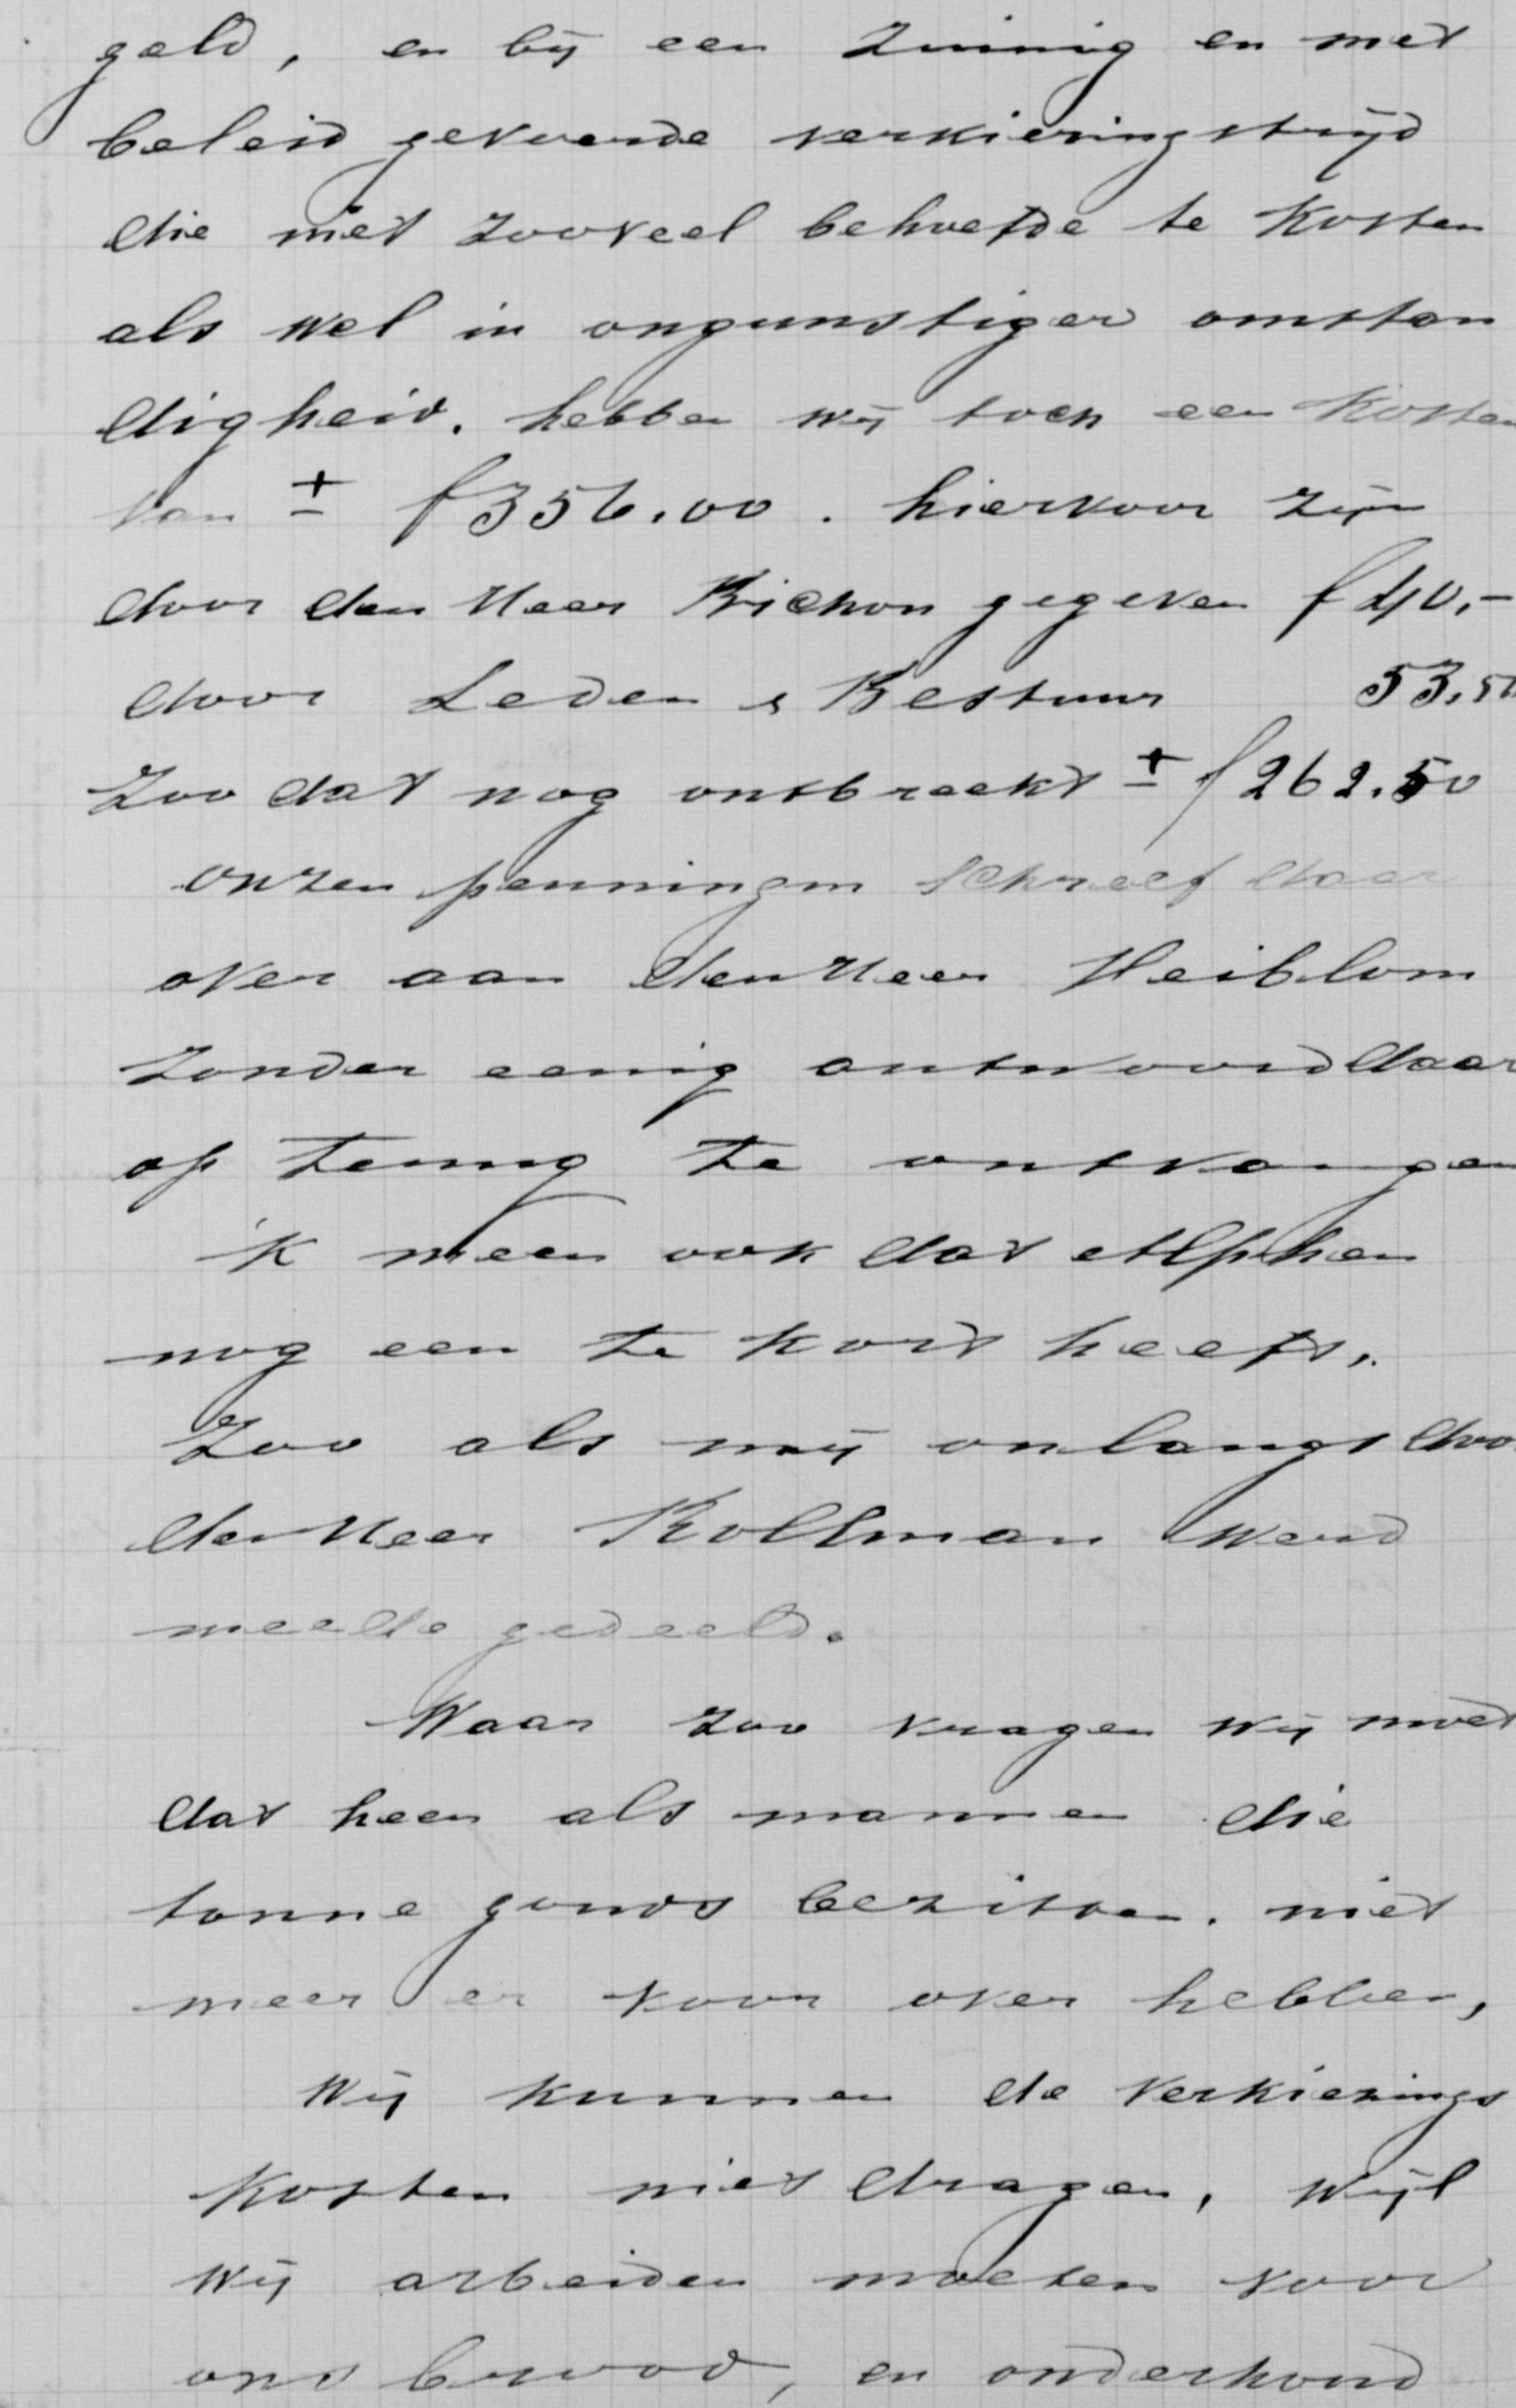 geld, en bij een zuinig en met
beleid gevoerde verkieringstrijd
die niet zooveel behoefde te kosten
als wel in ongunstiger omstan
digheid. hebben wij toch een kosten
van ± f 356.00. hiervoor zijn
door den Heer Bichon gegeven f 40,-
door Leden & Bestuur 53,50
Zoo dat nog ontbreekt ± f 262.50
onzen penningm schreef daar
over aan den Heer Heiblom
zonder eenig antwoord daar
op terug te ontvangen
'k meen ook dat Alphen
nog een te kort heeft,.
Zoo als mij onlangs doo
den Heer Bollman werd
meede gedeeld.
Waar zoo vragen wij moet
dat heen als mannen die
tonne gouds bezitten. niet
meer er voor over hebben,
Wij kunnen de Verkiezings
kosten niet dragen, wijl
wij arbeiden moeten voor
ons brood, en onderhoud